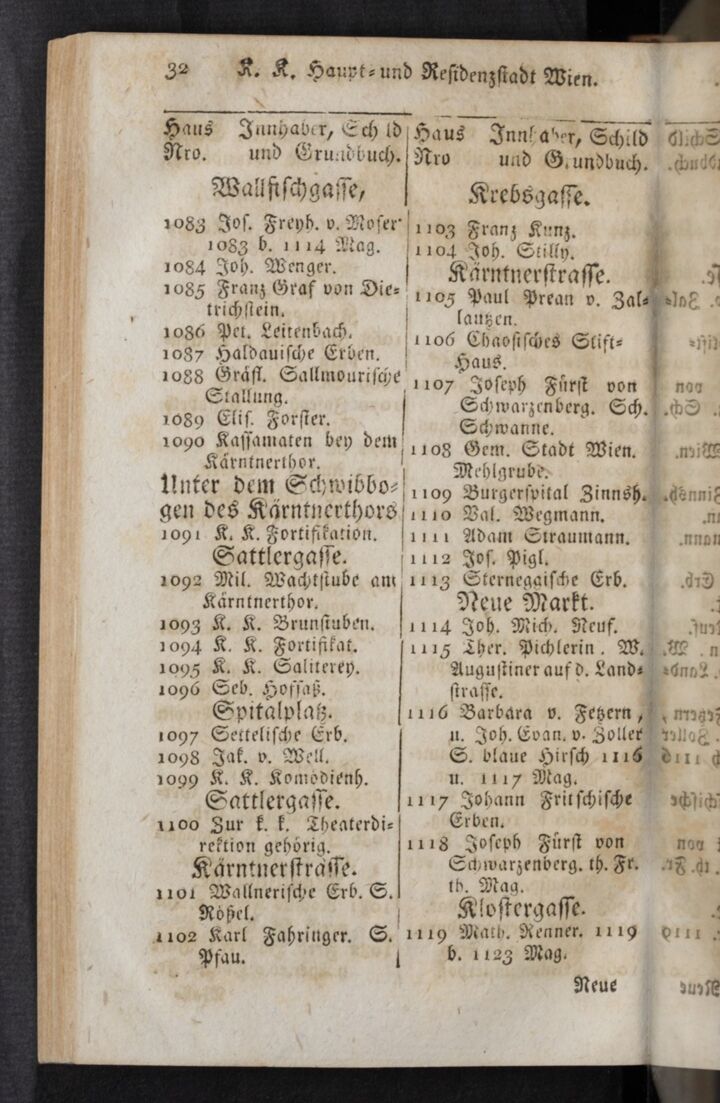 32 K. K. Haupt- und Residenzstadt Wien.
Haus Innhaber, Schild
Nro. und Grundbuch.
Wallfischgasse,
1083 Jos. Freyh. v. Moser
1083 b. 1114 Mag.
1084 Joh. Wenger.
1085 Franz Graf von Die-
trichstein.
1086 Pet. Leitenbach.
1087 Haldauische Erben.
1088 Gräfl. Sallmourische
Stallung.
1089 Elis. Forster.
1090 Kassamaten bey dem
Kärntnerthor.
Unter dem Schwibbo-
gen des Kärntnerthors
1091 K. K. Fortifikation.
Sattlergasse.
1092 Mil. Wachtstube am
Kärntnerthor.
1093 K. K. Brunstuben.
1094 K. K. Fortifikat.
1095 K. K. Saliterey.
1096 Seb. Hoffaß.
Spitalplatz.
1097 Settelische Erb.
1098 Jak. v. Well.
1099 K. K. Komödienh.
Sattlergasse.
1100 Zur k. k. Theaterdi-
rektion gehörig.
Kärntnerstrasse.
1101 Wallnerische Erb. S.
Rößel.
1102 Karl Fahringer. S.
Pfau.
Haus Innhaber, Schild
Nro und Grundbuch.
Krebsgasse.
1103 Franz Kunz.
1104 Joh. Stilly.
Kärntnerstrasse.
1105 Paul Prean v. Zal-
lautzen.
1106 Chaosisches Stift-
Haus.
1107 Joseph Fürst von
Schwarzenberg. Sch.
Schwanne.
1108 Gem. Stadt Wien.
Mehlgrube.
1109 Burgerspital Zinnsh.
1110 Val. Wegmann.
1111 Adam Straumann.
1112 Jos. Pigl.
1113 Sterneggische Erb.
Neue Markt.
1114 Joh. Mich. Neuf.
1115 Ther. Pichlerin. W.
Augustiner auf d. Land-
strasse.
1116 Barbara v. Fetzern,
u. Joh. Evan. v. Zoller
S. blaue Hirsch 1116
u. 1117 Mag.
1117 Johann Fritschische
Erben.
1118 Joseph Fürst von
Schwarzenberg. th. Fr.
th. Mag.
Klostergasse.
1119 Math. Renner. 1119
b. 1123 Mag.
Neue